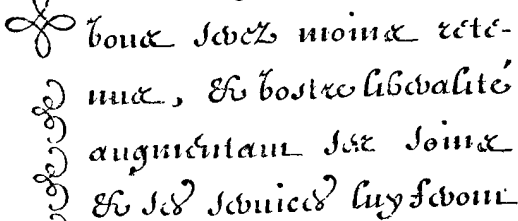 vous serez moins rete-
nus, & vostre liberalité
augmentant ses soins
& ses seruices luy feront